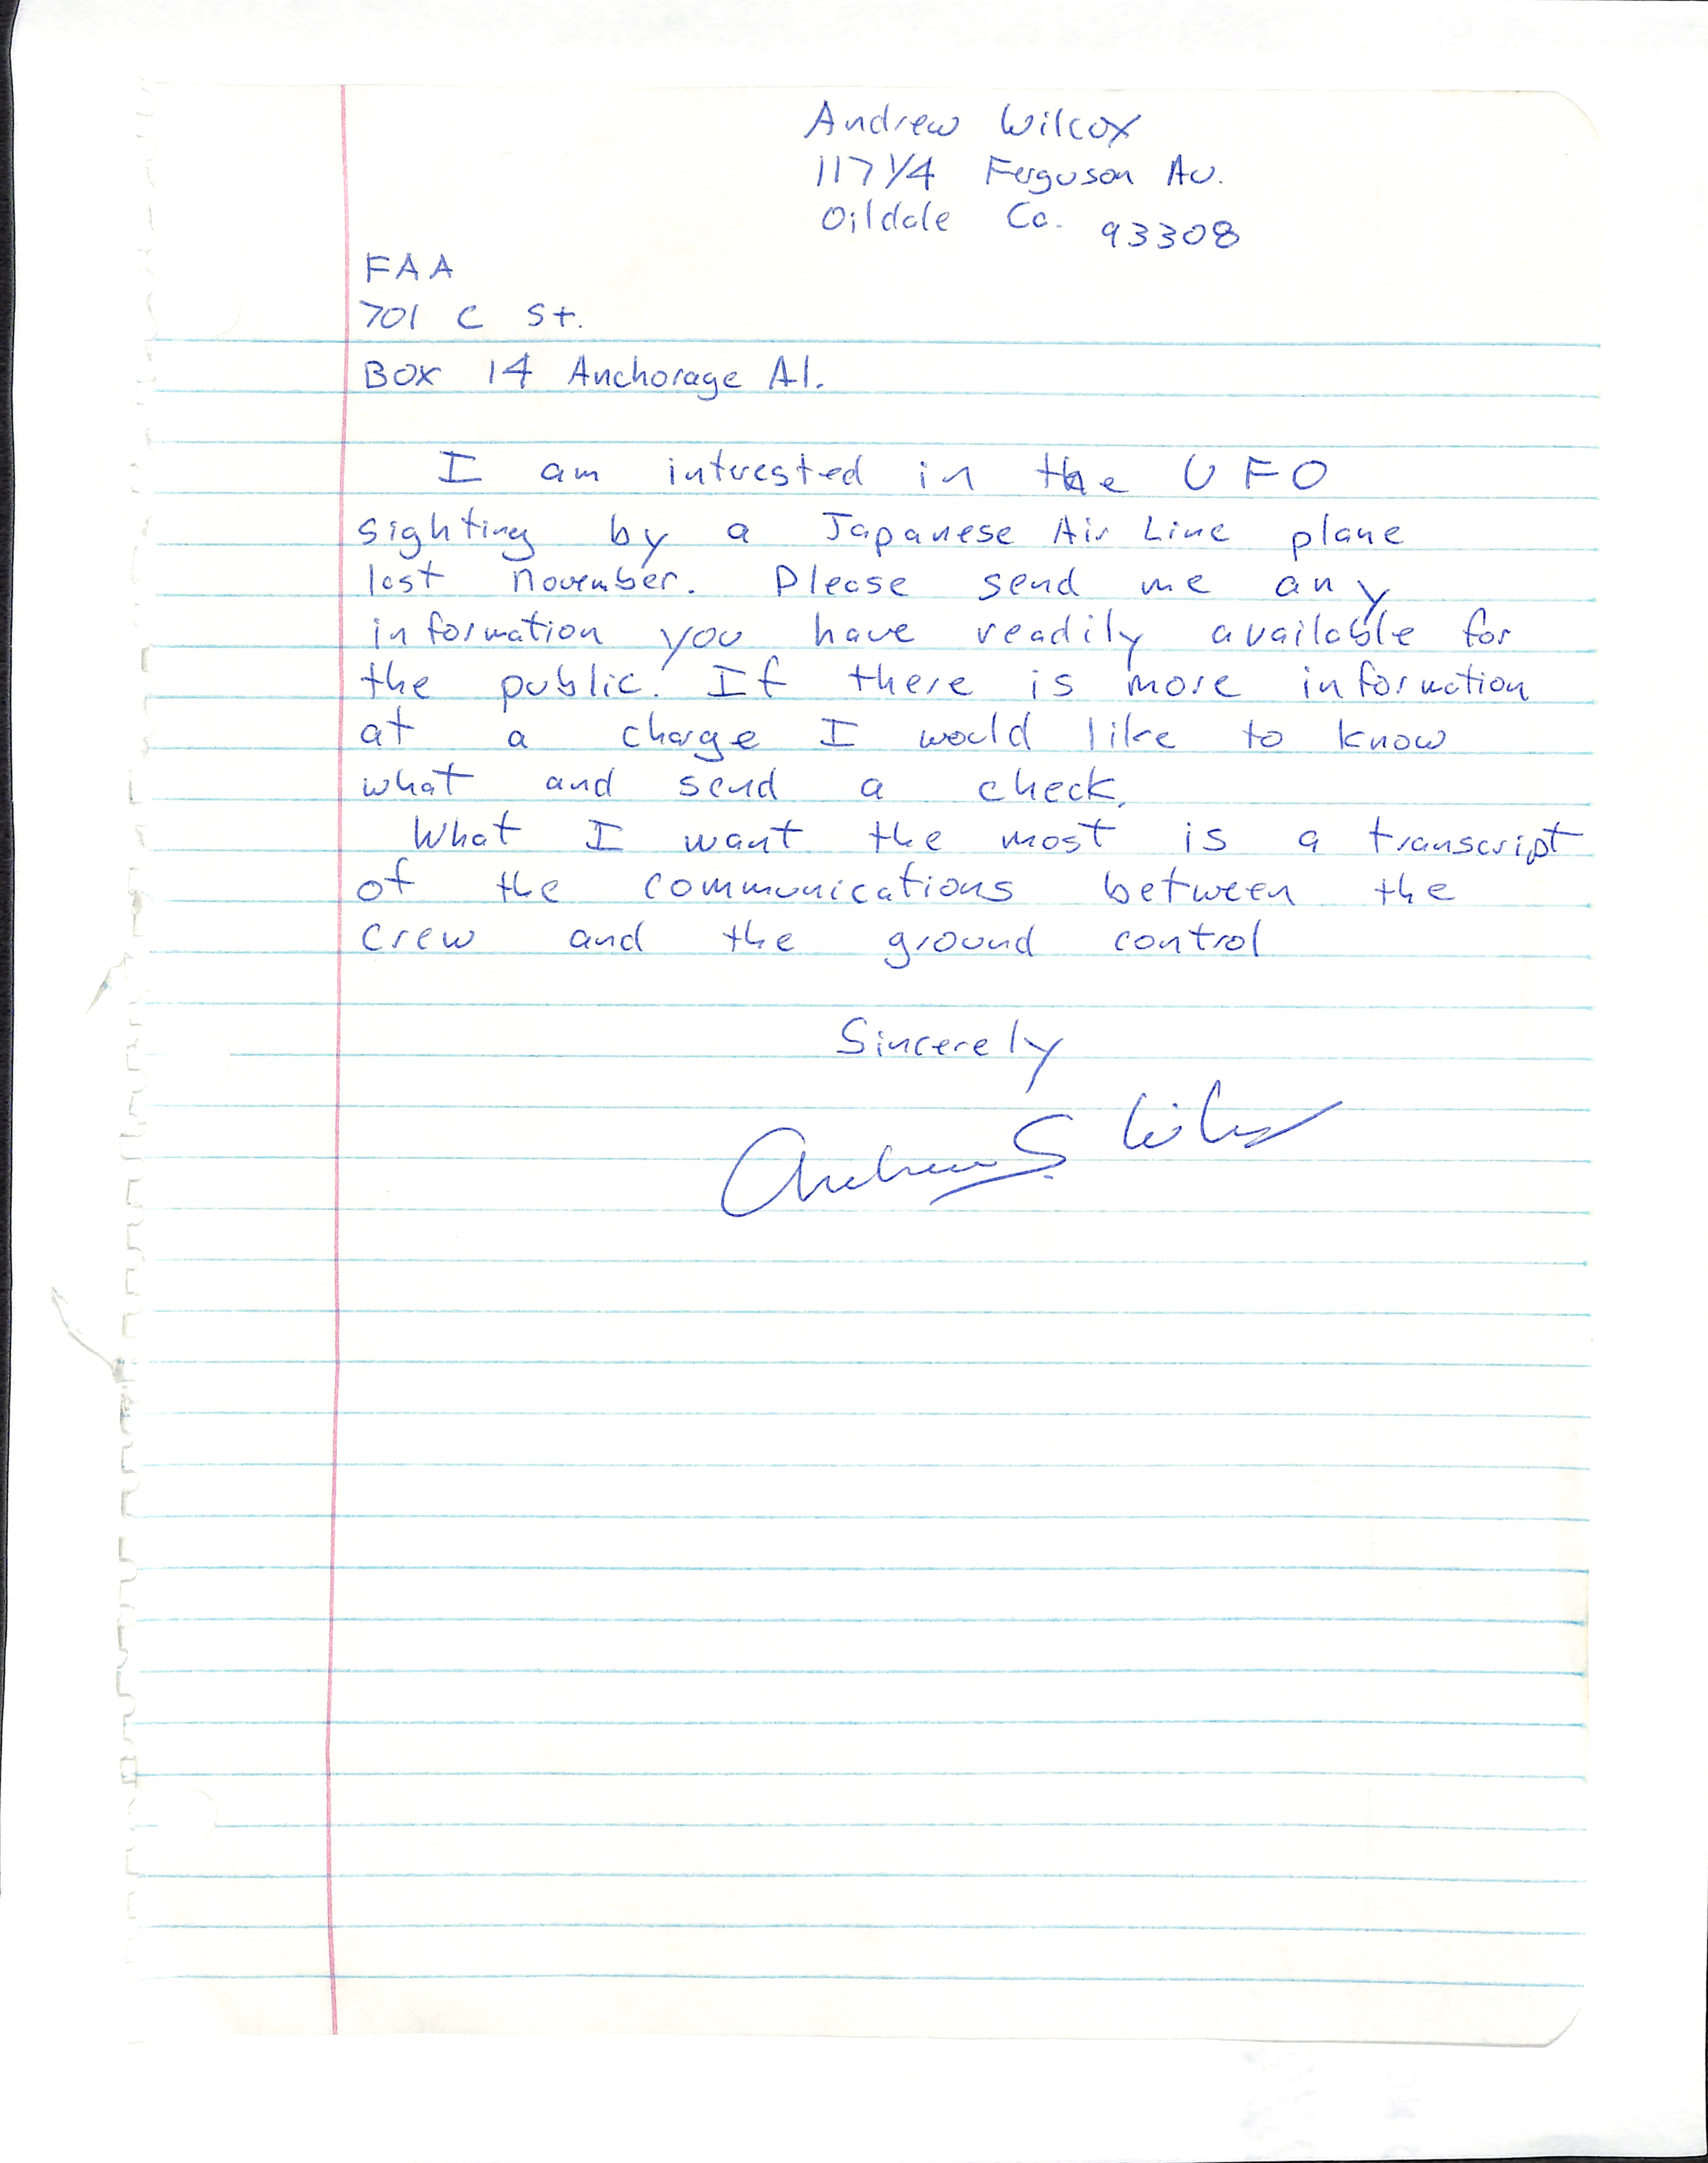 Andrew Wilcox
117 1/4 Ferguson Av.
Oildale Ca. 93308
FAA
701 C St.
Box 14 Anchorage Al.
I am intrested in the UFO
sighting by a Japanese Air Line plane
last november. Please send me any
information you have readily available for
the public. If there is more information
at a charge I would like to know
what and send a check.
What I want the most is a transcript
of the communications between the
crew and the ground control
Sincerely
Andrew S. Wilcox